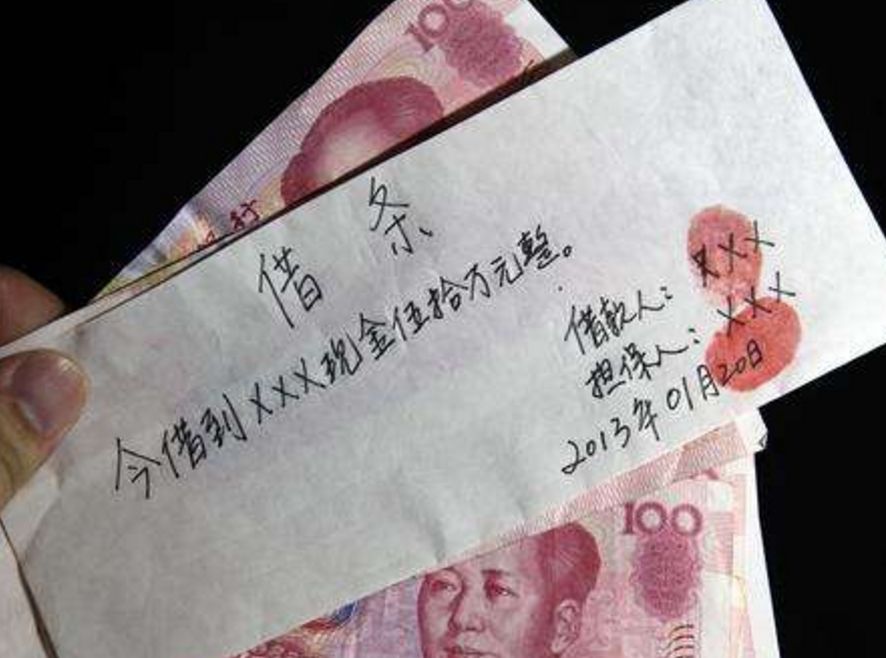 100
行
借条
今借到XXX现金伍拾万元整。
借款人：XXX
担保人：XXX
2013年01月20日
100